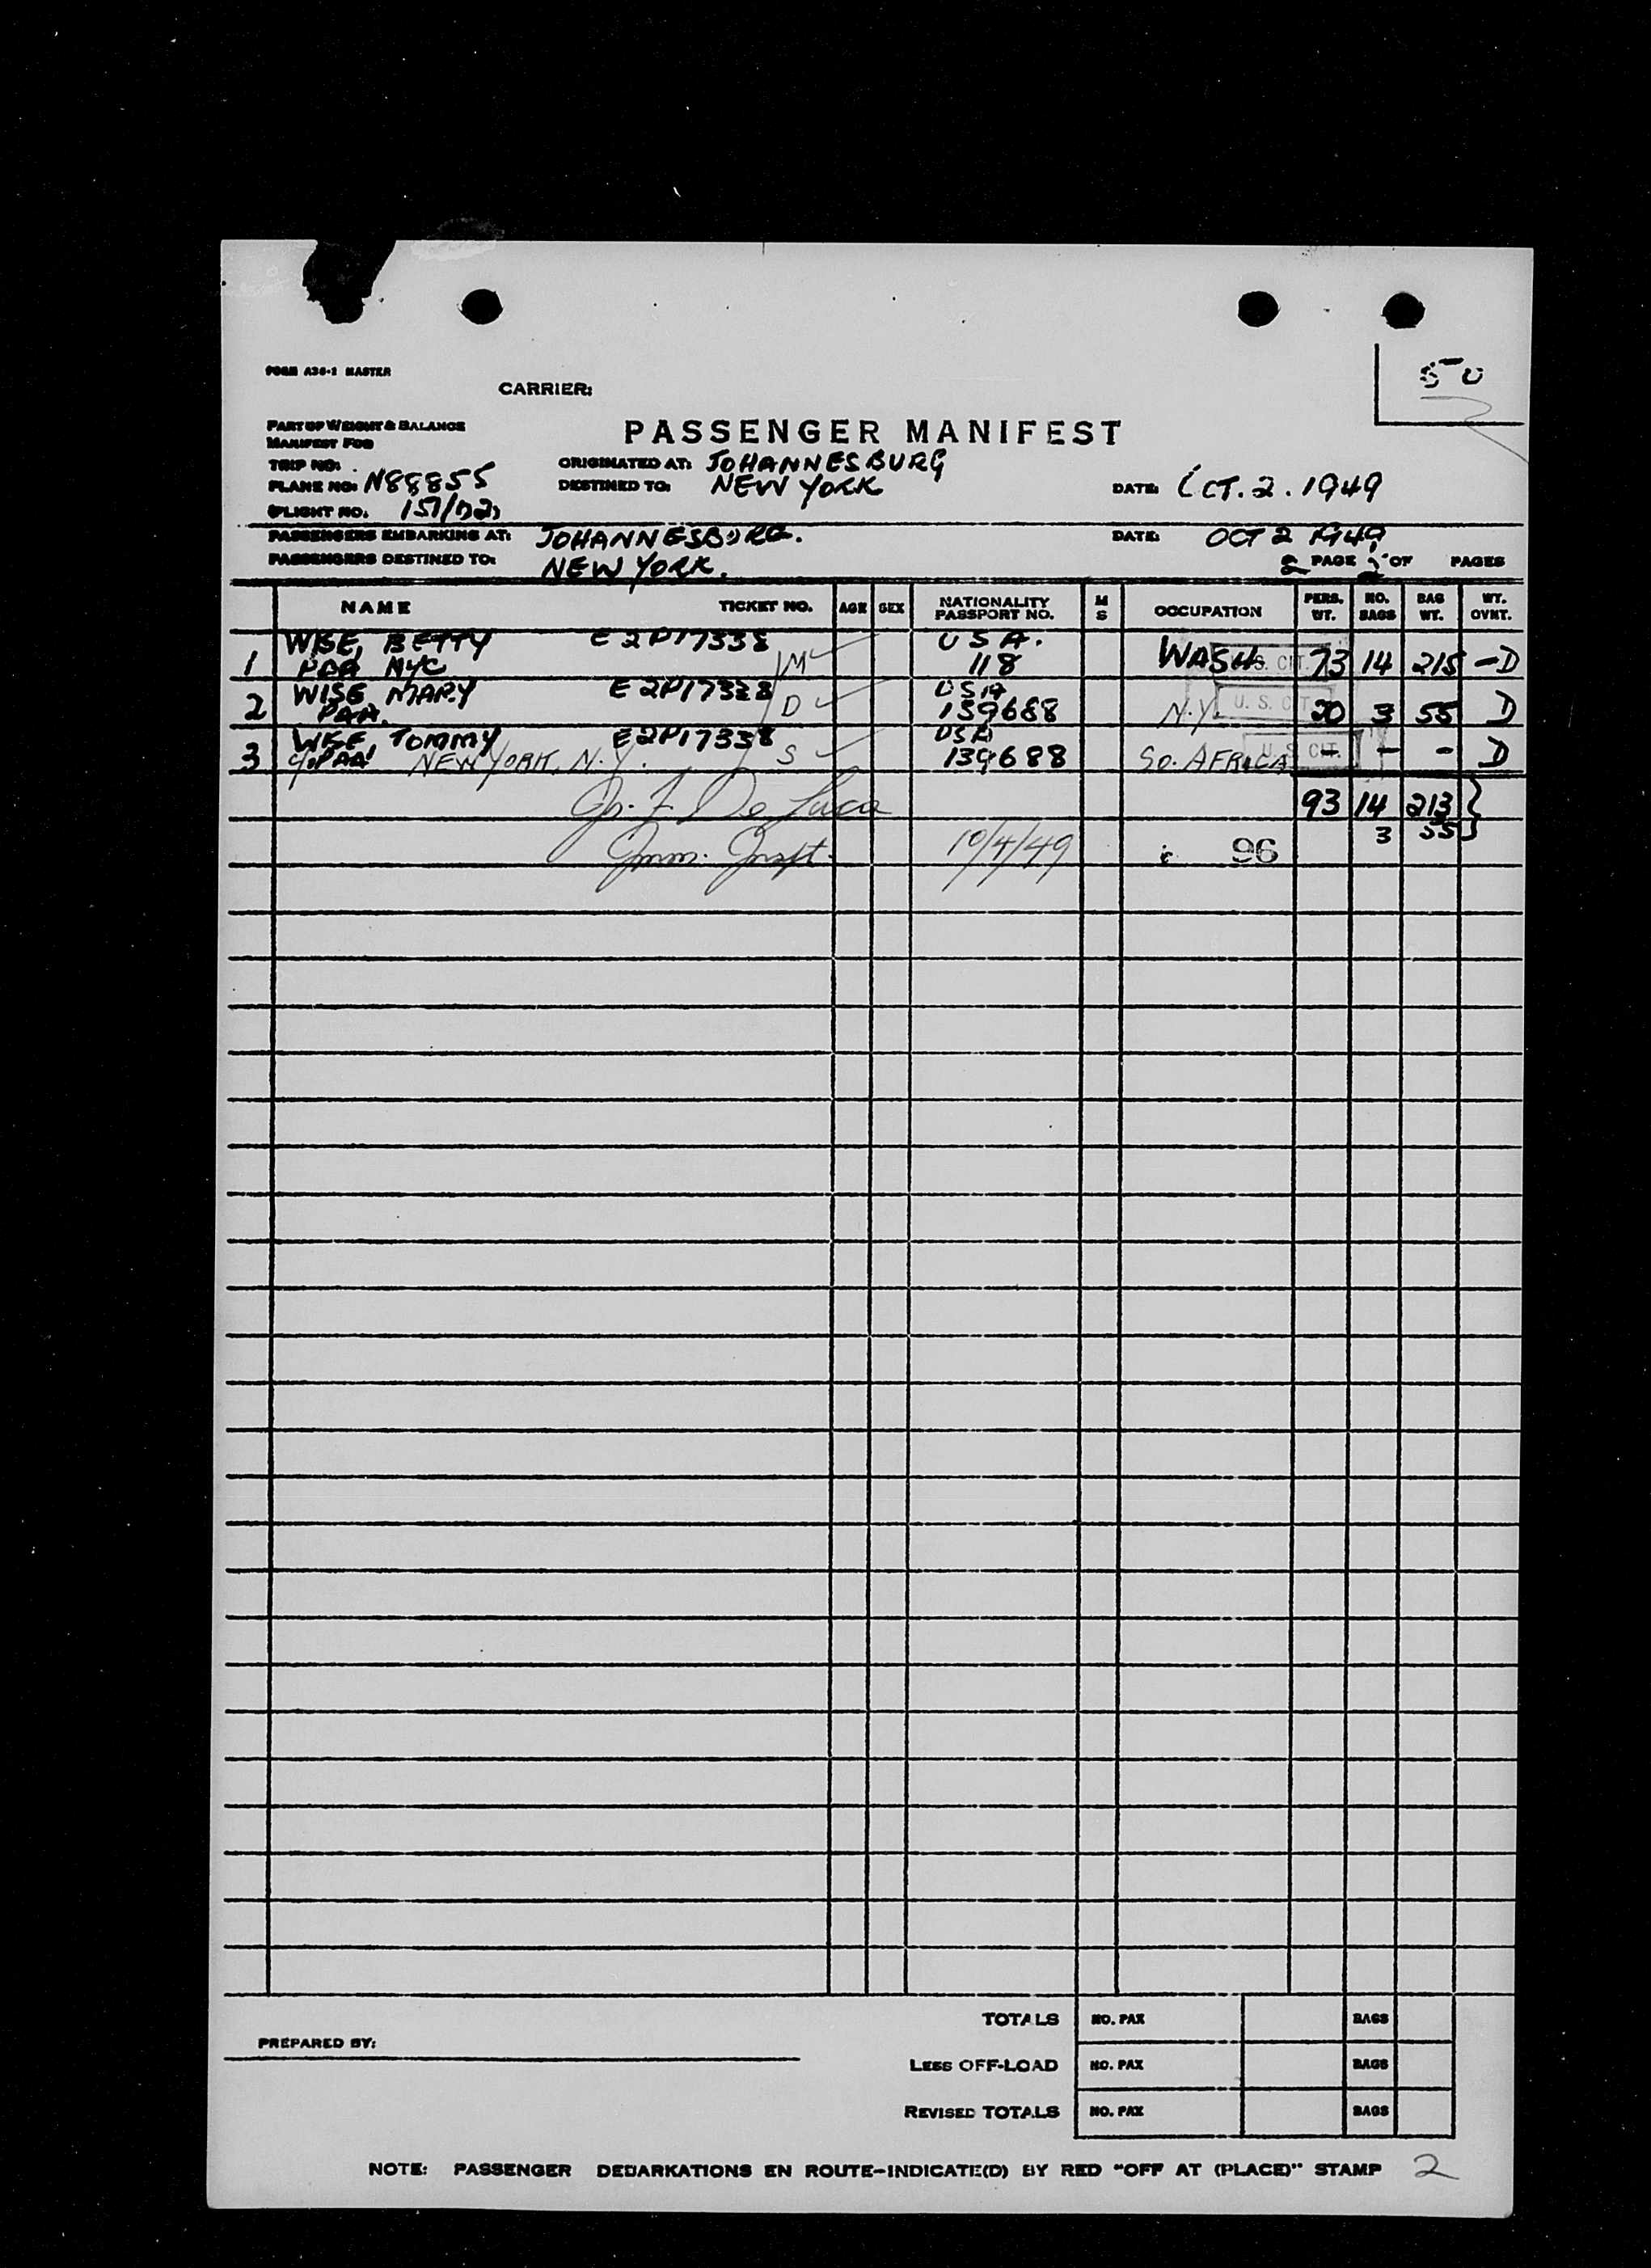 FORM A36-1 MASTER
50
CARRIER:
PART OF WEIGHT & BALANCE
MANIFEST FOR
PASSENGER MANIFEST
TRIP NO:
ORIGINATED AT: JOHANNESBURG
PLANE NO: N88855
DESTINED TO: NEW YORK
DATE: OCT. 2. 1949
FLIGHT NO. 151/
PASSENGERS EMBARKING AT: JOHANNESBURG.
DATE: OCT 2 1949
PASSENGERS DESTINED TO: NEW YORK.
2 PAGE 2 OF PAGES
NAME TICKET NO. AGE SEX NATIONALITY PASSPORT NO. M S OCCUPATION PERS. WT. NO. BAGS BAG WT. WT. OVNT.
WISE, BETTY E2P17338 USA.
1 PAA NYC M 118 WASH. U.S. CIT. 73 14 215 - D
WISE, MARY E2P17328 USA
2 PAA. D 139688 N.Y. U. S. CIT. 20 3 55 D
WISE, TOMMY E2P17338 USA
3 c/o PAA NEW YORK, N.Y. S 139688 SO. AFRICA U.S. CIT. - - - D
Jo. F. De Luca 93 14 213
3 55
Imm. Inspt. 10/4/49 96
TOTALS NO. PAX BAGS
PREPARED BY:
LESS OFF-LOAD NO. PAX BAGS
REVISED TOTALS NO. PAX BAGS
NOTE: PASSENGER DEBARKATIONS EN ROUTE-INDICATE(D) BY RED "OFF AT (PLACE)" STAMP 2